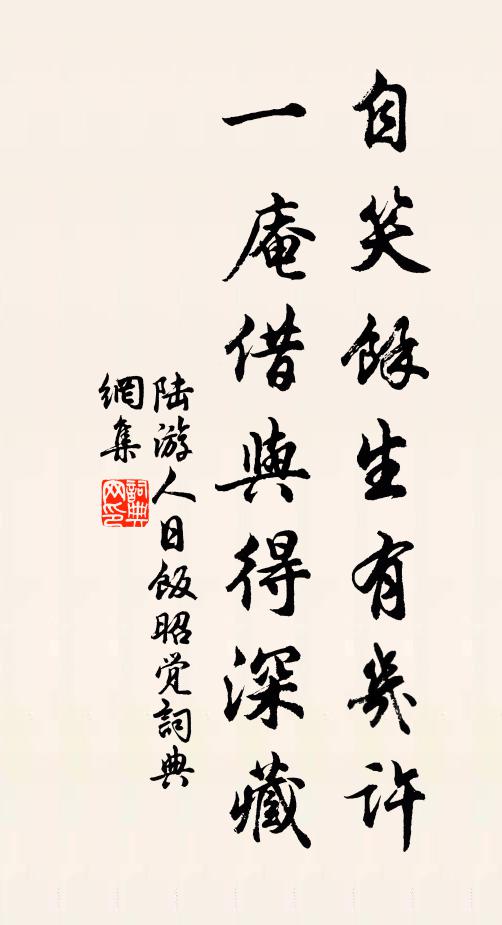 自笑餘生有幾許
一庵借與得深藏
陆游人日飯昭覚詞典
網集
詞典網印